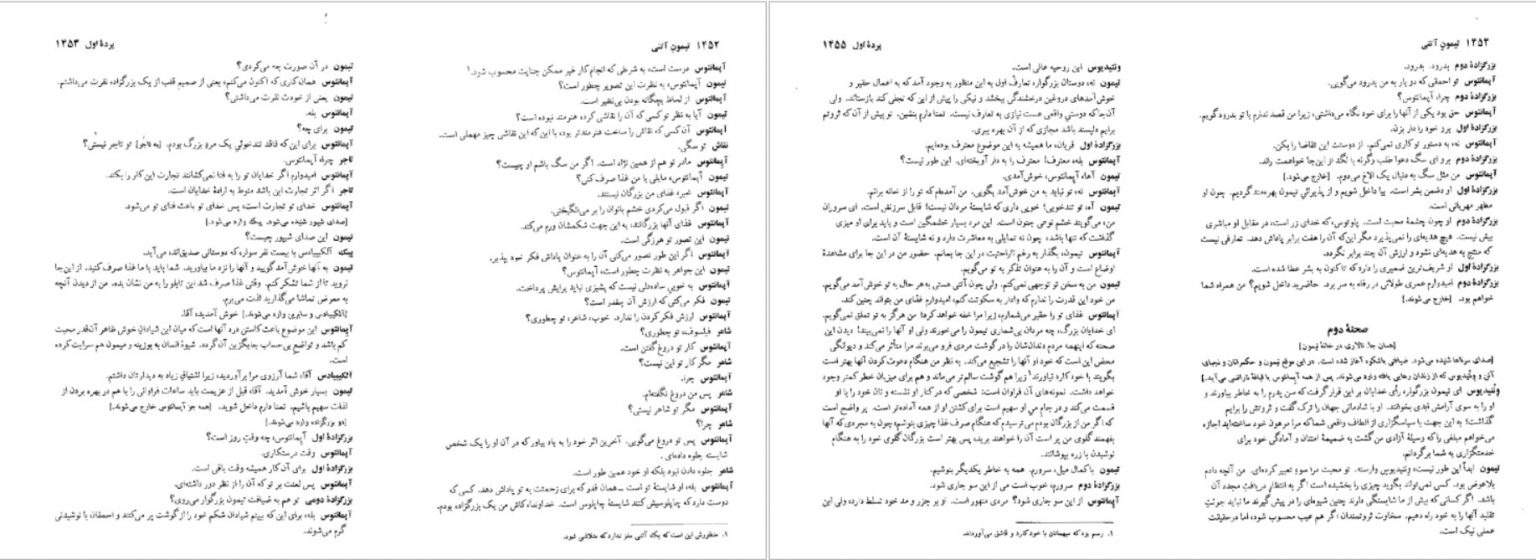 ۱۴۵۲ تیمونِ آتنی
آپمانتوس درست است، به شرطی که انجام کار غیر ممکن جنایت محسوب شود.۱
تیمون آپمانتوس، به نظرت این تصویر چطور است؟
آپمانتوس از لحاظ بچگانه بودن بی‌نظیر است.
تیمون آیا به نظر تو کسی که آن را نقاشی کرده هنرمند نبوده است؟
آپمانتوس آن کسی که نقاش را ساخت هنرمندتر بود، با این که این نقاشی چیز مهملی است.
نقاش تو سگی.
آپمانتوس مادر تو هم از همین نژاد است. اگر من سگ باشم او چیست؟
تیمون آپمانتوس، مایلی با من غذا صرف کنی؟
آپمانتوس خیر، غذای من بزرگان نیستند.
تیمون اگر قبول می‌کردی خشم بانوان را بر می‌انگیختی.
آپمانتوس غذای آنها بزرگانند، به این جهت شکمشان ورم می‌کند.
تیمون این تصور تو هرزگی است.
آپمانتوس اگر این طور تصور می‌کنی آن را به عنوان پاداش فکر خود بپذیر.
تیمون این جواهر به نظرت چطور است، آپمانتوس؟
آپمانتوس به خوبیِ ساده‌دلی نیست که پشیزی نباید برایش پرداخت.
تیمون فکر می‌کنی که ارزش آن چقدر است؟
آپمانتوس ارزش فکر کردن را ندارد. خوب، شاعر، تو چطوری؟
شاعر فیلسوف، تو چطوری؟
آپمانتوس کار تو دروغ گفتن است.
شاعر مگر کار تو این نیست؟
آپمانتوس چرا.
شاعر پس من دروغ نگفته‌ام.
آپمانتوس مگر تو شاعر نیستی؟
شاعر چرا؟
آپمانتوس پس تو دروغ می‌گویی. آخرین اثر خود را به یاد بیاور که در آن او را یک شخص
شایسته جلوه داده‌ای.
شاعر جلوه دادن نبود بلکه او خود همین طور است.
آپمانتوس بله، او شایستهٔ تو است – همان قدر که برای زحمتت به تو پاداش دهد. کسی که
دوست دارد که چاپلوسیش کنند شایستهٔ چاپلوس است. خداوندا، کاش من یک بزرگزاده بودم.
۱. منظورش این است که یک آتنی مغز ندارد که متلاشی شود.
پردهٔ اول ۱۴۵۳
تیمون در آن صورت چه می‌کردی؟
آپمانتوس همان کاری که اکنون می‌کنم، یعنی از صمیم قلب از یک بزرگزاده نفرت می‌داشتم.
تیمون یعنی از خودت نفرت می‌داشتی؟
آپمانتوس بله.
تیمون برای چه؟
آپمانتوس برای این که فاقد تندخوئیِ یک مردِ بزرگ بودم. [به تاجر] تو تاجر نیستی؟
تاجر چرا، آپمانتوس.
آپمانتوس امیدوارم اگر خدایان تو را به فنا نمی‌کشانند تجارت این کار را بکند.
تاجر اگر اثر تجارت این باشد منوط به ارادهٔ خدایان است.
آپمانتوس خدای تو تجارت است، پس خدای تو باعث فنای تو می‌شود.
[صدای شیپور شنیده می‌شود. پیک وارد می‌شود.]
تیمون این صدای شیپور چیست؟
پیک آلکیبیادس با بیست نفر سواره که دوستانی صدیق‌اند، می‌آید.
تیمون به آنها خوش آمد گویید و آنها را نزد ما بیاورید. شما باید با ما غذا صرف کنید. از این‌جا
نروید تا از شما تشکر کنم. وقتی غذا صرف شد این تابلو را به من نشان بده. من از دیدن آنچه
به معرض تماشا می‌گذارید لذت می‌برم.
[آلکیبیادس و سایرین وارد می‌شوند.] خوش آمدید، آقا.
آپمانتوس این موضوع باعث کاستن درد آنها است که میان این شیادانِ خوش ظاهر آن‌قدر محبت
کم باشد و تواضع بی‌حساب جایگزین آن گردد. شیوهٔ انسان به بوزینه و میمون هم سرایت کرده
است.
آلکیبیادس آقا، شما آرزوی مرا برآوردید، زیرا اشتیاق زیاد به دیدارتان داشتم.
تیمون بسیار خوش آمدید، آقا، قبل از عزیمت باید ساعات فراوانی را با هم در بهره بردن از
لذات سهیم باشیم. تمنا دارم داخل شوید. [همه جز آپمانتوس خارج می‌شوند.]
[دو بزرگزاده وارد می‌شوند.]
بزرگزادهٔ اول آپمانتوس، چه وقتِ روز است؟
آپمانتوس وقت درستکاری.
بزرگزادهٔ اول برای آن کار همیشه وقت باقی است.
آپمانتوس پس لعنت بر تو که آن را از نظر دور داشته‌ای.
بزرگزادهٔ دومی تو هم به ضیافت تیمون بزرگوار می‌روی؟
آپمانتوس بله، برای این که ببینم شیادان شکم خود را از گوشت پر می‌کنند و احمقان با نوشیدنی
گرم می‌شوند.
۱۴۵۴ تیمونِ آتنی
بزرگزادهٔ دوم بدرود. بدرود.
آپمانتوس تو احمقی که دو بار به من بدرود می‌گویی.
بزرگزادهٔ دوم چرا، آپمانتوس؟
آپمانتوس حق بود یکی از آنها را برای خود نگاه می‌داشتی، زیرا من قصد ندارم با تو بدرود گویم.
بزرگزادهٔ اول برو خود را دار بزن.
آپمانتوس نه، به دستور تو کاری نمی‌کنم. از دوستت این تقاضا را بکن.
بزرگزادهٔ دوم برو ای سگ دعوا طلب وگرنه با لگد از این‌جا خواهمت راند.
آپمانتوس من مثل سگ به دنبال یک الاغ می‌دوم. [خارج می‌شود.]
بزرگزادهٔ اول او دشمن بشر است. بیا داخل شویم و از پذیرائیِ تیمون بهره‌مند گردیم. چون او
مظهر مهربانی است.
بزرگزادهٔ دوم او چون چشمهٔ محبت است. پلوتوس، که خدای زر است، در مقابل او مباشری
بیش نیست. هیچ هدیه‌ای را نمی‌پذیرد مگر این‌که آن را هفت برابر پاداش دهد. تعارفی نیست
که منتج به هدیه‌ای نشود و ارزش آن چند برابر نگردد.
بزرگزادهٔ اول او شریف‌ترین ضمیری را دارد که تاکنون به بشر عطا شده است.
بزرگزادهٔ دوم امیدوارم عمری طولانی در رفاه به سر برد. حاضرید داخل شویم؟ من همراه شما
خواهم بود. [خارج می‌شوند.]
صحنهٔ دوم
[همان جا. تالاری در خانهٔ تیمون]
[صدای سرناها شنیده می‌شود. ضیافتی باشکوه آغاز شده است. در این موقع تیمون و حکمرانان و نجبای
آتن و ونتیدیوس که از زندان رهایی یافته وارد می‌شوند. پس از همه آپمانتوس با قیافهٔ ناراضی می‌آید.]
ونتیدیوس ای تیمون بزرگوار، رأی خدایان بر این قرار گرفت که سن پدرم را به خاطر بیاورند و
او را به سوی آرامش ابدی بخوانند. او با شادمانی جهان را ترک گفت و ثروتش را برایم
گذاشت؛ به این جهت با سپاسگزاری از الطاف واقعی شما که مرا مرهون خود ساخته‌اید اجازه
می‌خواهم مبلغی را که وسیلهٔ آزادی من گشت به ضمیمهٔ امتنان و آمادگی خود برای
خدمتگزاری به شما برگردانم.
تیمون ابداً این طور نیست، ونتیدیوس وارسته. تو محبت مرا سوء تعبیر کرده‌ای. من آنچه دادم
بلاعوض بود. کسی نمی‌تواند بگوید چیزی را بخشیده است اگر به انتظار دریافت مجدد آن
باشد. اگر کسانی که بیش از ما شایستگی دارند چنین شیوه‌ای را در پیش گیرند ما نباید جرئتِ
تقلید آنها را به خود راه دهیم. سخاوت ثروتمندان اگر هم عیب محسوب شود، اما در حقیقت
عملی نیک است.
پردهٔ اول ۱۴۵۵
ونتیدیوس این روحیه عالی است.
تیمون نه، دوستان بزرگوار، تعارف اول به این منظور به وجود آمد که به اعمال حقیر و
خوش‌آمدهای دروغین درخشندگی ببخشد و نیکی را پیش از این که تجلی کند بازستاند. ولی
آن‌جا که دوستیِ واقعی هست نیازی به تعارف نیست. تمنا دارم بنشین. تو بیش از آن که ثروتم
برایم دلپسند باشد مجازی که از آن بهره ببری.
بزرگزادهٔ اول قربان، ما همیشه به این موضوع معترف بوده‌ایم.
آپمانتوس بله، معترف! معترف به دار آویخته‌ای. این طور نیست؟
تیمون آها، آپمانتوس، خوش‌آمدی.
آپمانتوس نه، تو نباید به من خوش‌آمد بگویی. من آمده‌ام که تو را از خانه برانم.
تیمون آه، تو تندخویی؛ خویی داری که شایستهٔ مردان نیست؛ قابل سرزنش است. ای سروران
من، می‌گویند خشم نوعی جنون است. این مرد بسیار خشمگین است و باید برای او میزی
گذاشت که تنها باشد، چون نه تمایلی به معاشرت دارد و نه شایستهٔ آن است.
آپمانتوس تیمون، بگذار به رغم ناراحتیت در این جا بمانم. حضور من در این جا برای مشاهدهٔ
اوضاع است و آن را به عنوان تذکر به تو می‌گویم.
تیمون من به سخن تو توجهی نمی‌کنم. ولی چون آتنی هستی به هر حال به تو خوش آمد می‌گویم.
من خود این قدرت را ندارم که وادار به سکوتت کنم، امیدوارم غذای من بتواند چنین کند.
آپمانتوس غذای تو را حقیر می‌شمارم، زیرا مرا خفه خواهد کرد؛ من هرگز به تو تملق نمی‌گویم.
ای خدایان بزرگ، چه مردان بی‌شماری تیمون را می‌خورند ولی او آنها را نمی‌بیند! دیدن این
صحنه که اینهمه مردم دندان‌شان را در گوشت مردی فرو می‌برند مرا متأثر می‌کند و دیوانگی
محض این است که خود او آنها را تشجیع می‌کند. به نظر من هنگام دعوت کردن آنها بهتر است
بگویند با خود کارد نیاورند۱ زیرا هم گوشت سالم‌تر می‌ماند و هم برای میزبان خطر کمتر وجود
خواهد داشت. نمونه‌های آن فراوان است: شخصی که در کنار او نشسته و نان خود را با او
قسمت می‌کند و در جام میِ او سهیم است برای کشتن او از همه آماده‌تر است. پر واضح است
که اگر من از بزرگان بودم می‌ترسیدم که هنگام صرف غذا چیزی بنوشم، چون به مجردی که آنها
بفهمند گلوی من پر است آن را خواهند برید، پس بهتر است بزرگان گلوی خود را به هنگام
نوشیدن با زره بپوشانند.
تیمون با کمال میل، سرورم. همه به خاطر یکدیگر بنوشیم.
بزرگزادهٔ دوم سرورم، خوب است می از این سو جاری شود.
آپمانتوس از این سو جاری شود؟ مردی متهور است. او بر جزر و مد خود تسلط دارد، ولی این
۱. رسم بود که میهمانان با خود کارد و قاشق می‌آوردند.